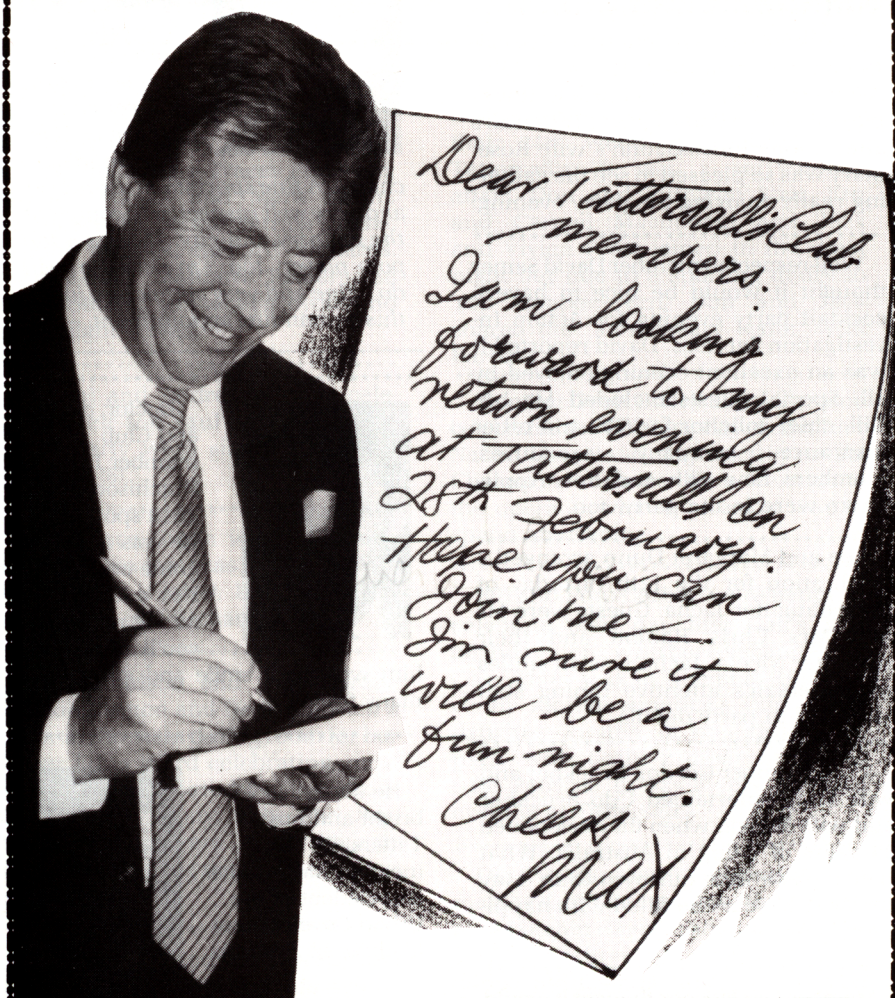 Dear Tattersall's Club
members:
I am looking
forward to my
return evening
at Tattersalls on
28th February.
Hope you can
Join me —
I'm sure it
will be a
fun night.
Cheers
MAX